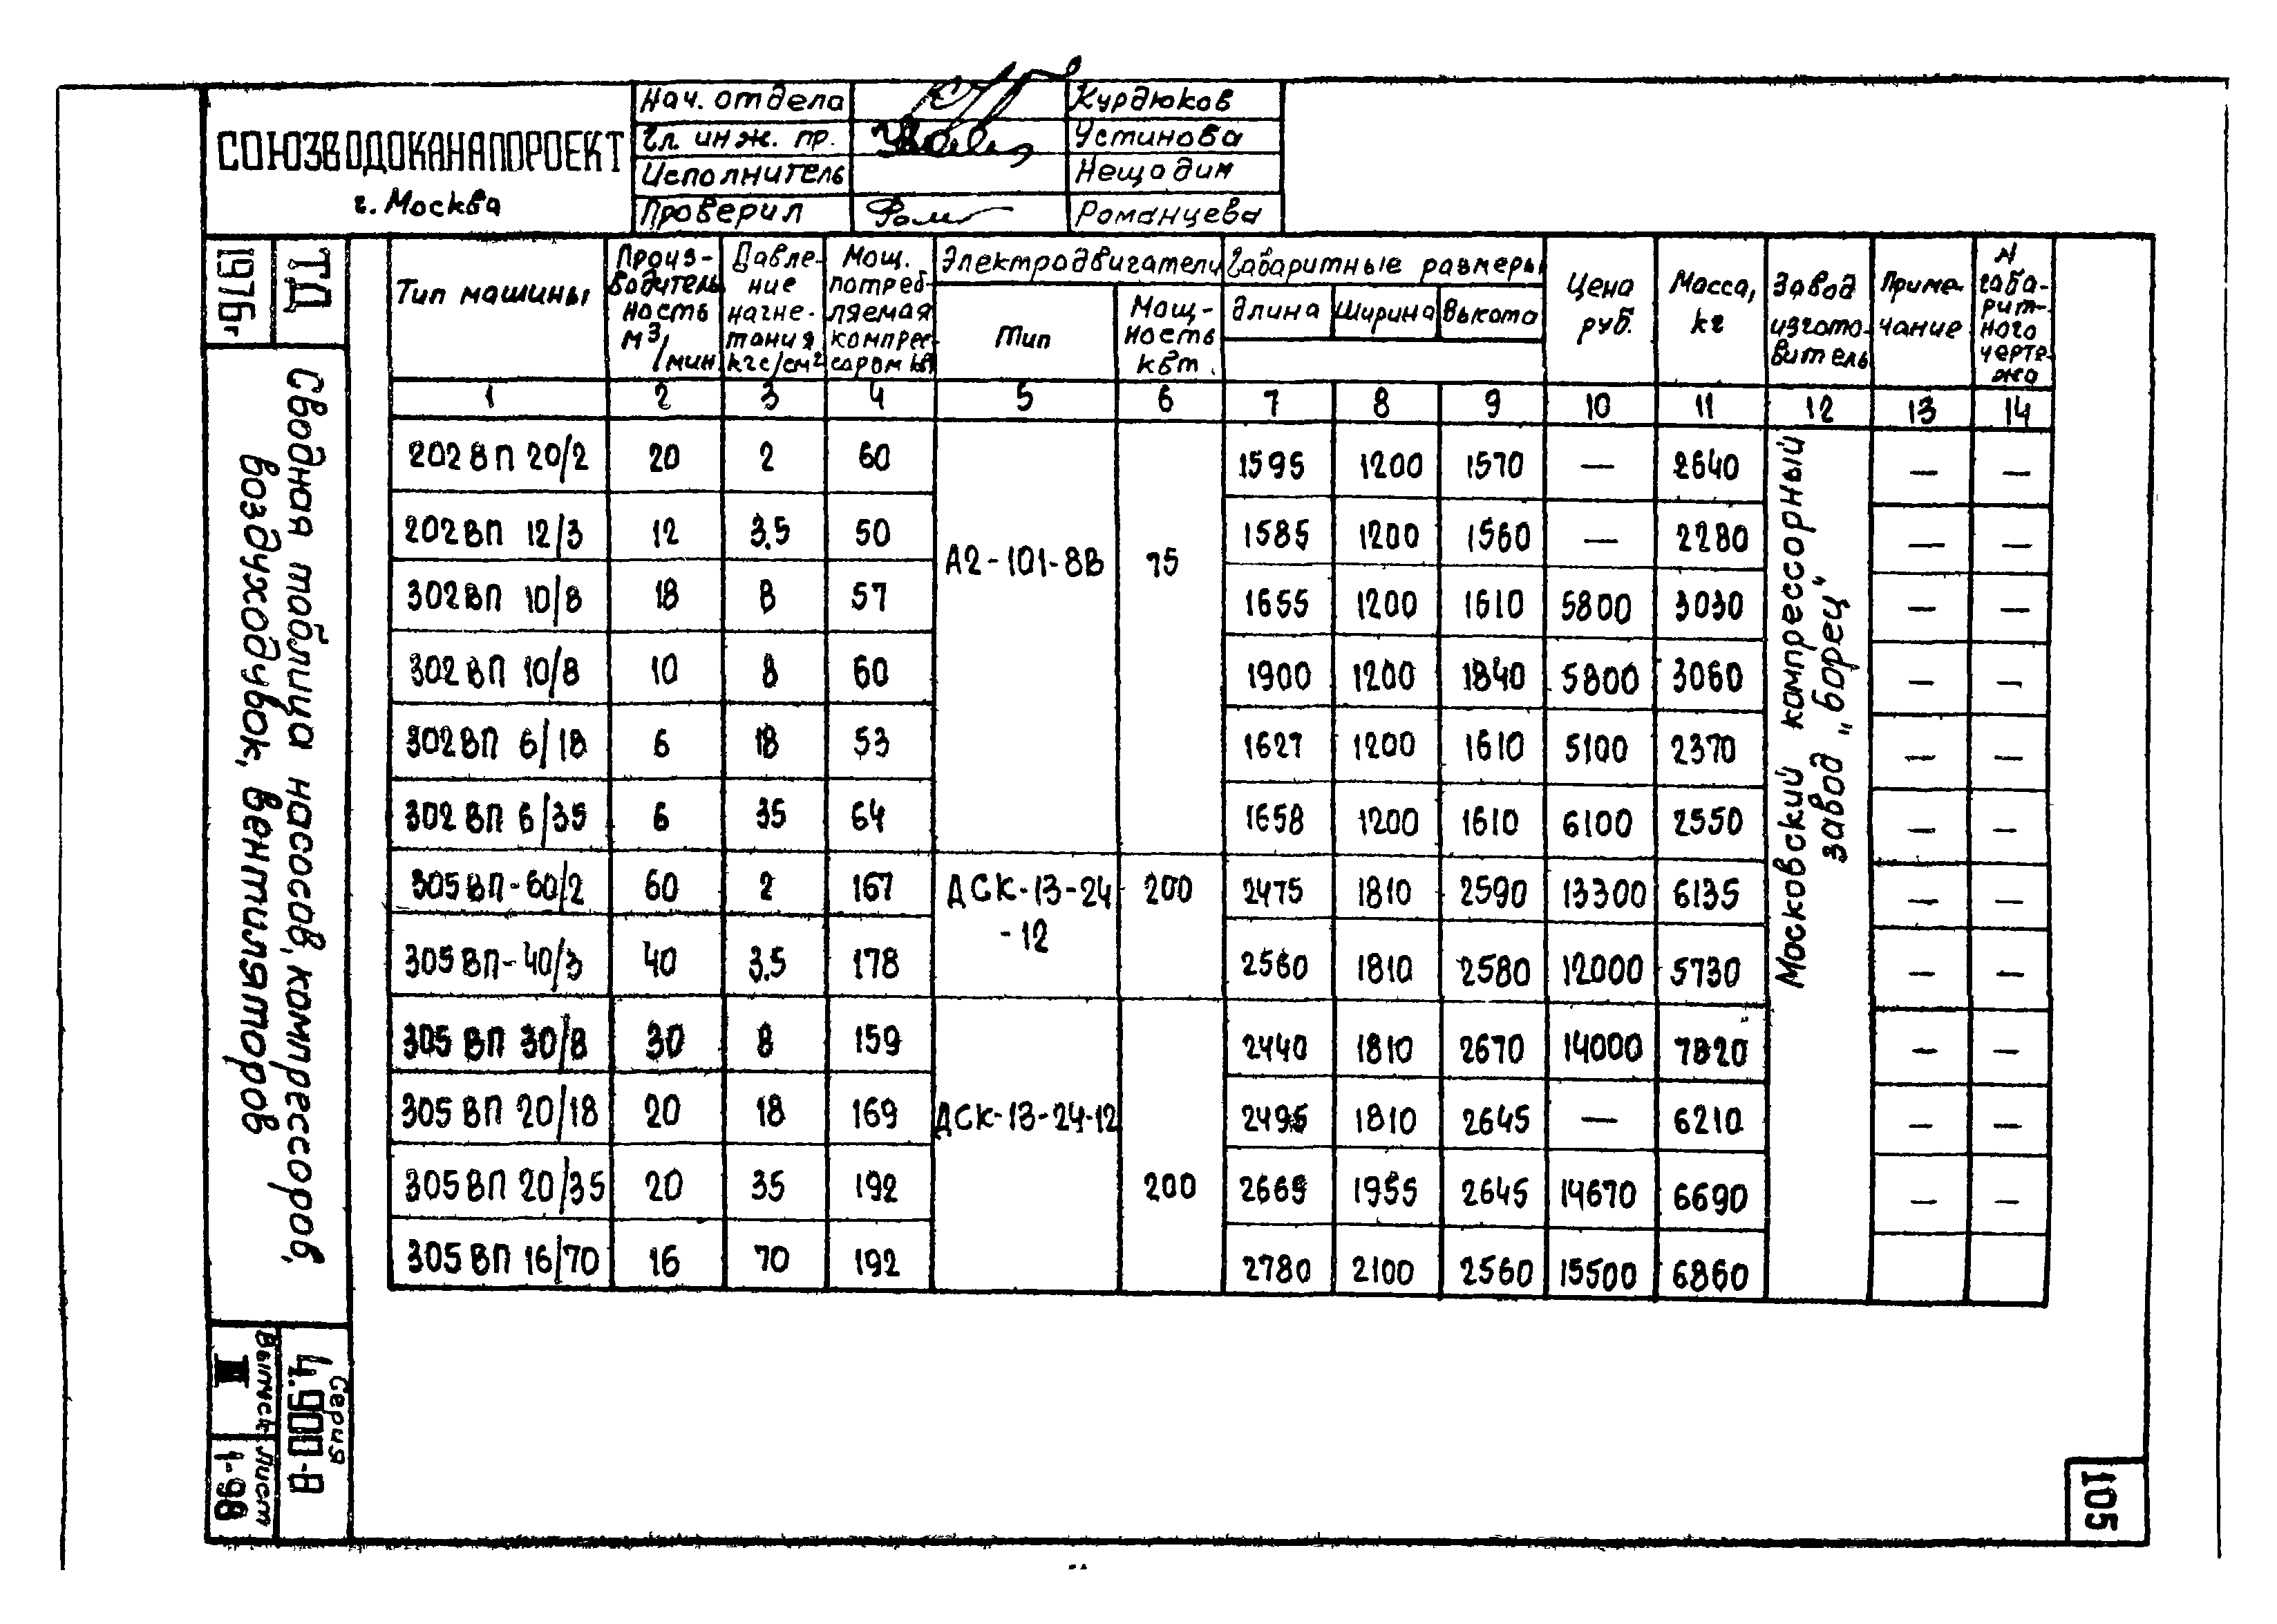 СОЮЗВОДОКАНАЛПРОЕКТ
г. Москва
Нач. отдела Курдюков
Гл. инж. пр. Устинова
Исполнитель Нещадим
Проверил Романцева
ТД
1976г
Сводная таблица насосов, компрессоров,
воздуходувок, вентиляторов
Серия
4.900-8
Выпуск
II
Лист
1-98
Тип машины
Произ-
водитель
ность
м³/мин
Давле-
ние
нагне-
тания
кгс/см²
Мощ.
потреб-
ляемая
компрес-
сором кв
Электродвигатели
Тип
Мощ-
ность
квт.
Габаритные размеры
Длина Ширина Высота
Цена
руб.
Масса,
кг
Завод
изгото-
витель
Приме-
чание
N
габа-
рит-
ного
черте-
жа
1 2 3 4 5 6 7 8 9 10 11 12 13 14
202 ВП 20/2 20 2 60 1595 1200 1570 — 2640 — —
202 ВП 12/3 12 3.5 50 1585 1200 1560 — 2280 — —
А2-101-8В 75
302 ВП 10/8 18 8 57 1655 1200 1610 5800 3030 — —
302 ВП 10/8 10 8 60 1900 1200 1840 5800 3060 — —
302 ВП 6/18 6 18 53 1627 1200 1610 5100 2370 — —
302 ВП 6/35 6 35 64 1658 1200 1610 6100 2550 — —
305 ВП-60/2 60 2 167 ДСК-13-24 200 2475 1810 2590 13300 6135 — —
-12
305 ВП-40/3 40 3.5 178 2560 1810 2580 12000 5730 — —
305 ВП 30/8 30 8 159 2440 1810 2670 14000 7820 — —
305 ВП 20/18 20 18 169 ДСК-13-24-12 2495 1810 2645 — 6210 — —
305 ВП 20/35 20 35 192 200 2665 1955 2645 14670 6690 — —
305 ВП 16/70 16 70 192 2780 2100 2560 15500 6860
Московский компрессорный
завод „Борец"
105